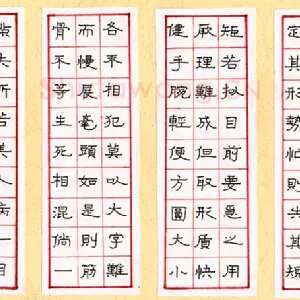 定其形勢忙則失其規
矩若擬目前要急之用
厥理難成但取形質快
健手腕輕便方圓大小
各不相犯莫以大字難
而慢展毫頭如是則筋
骨不等生死相混倘一
點失所若美人病一目